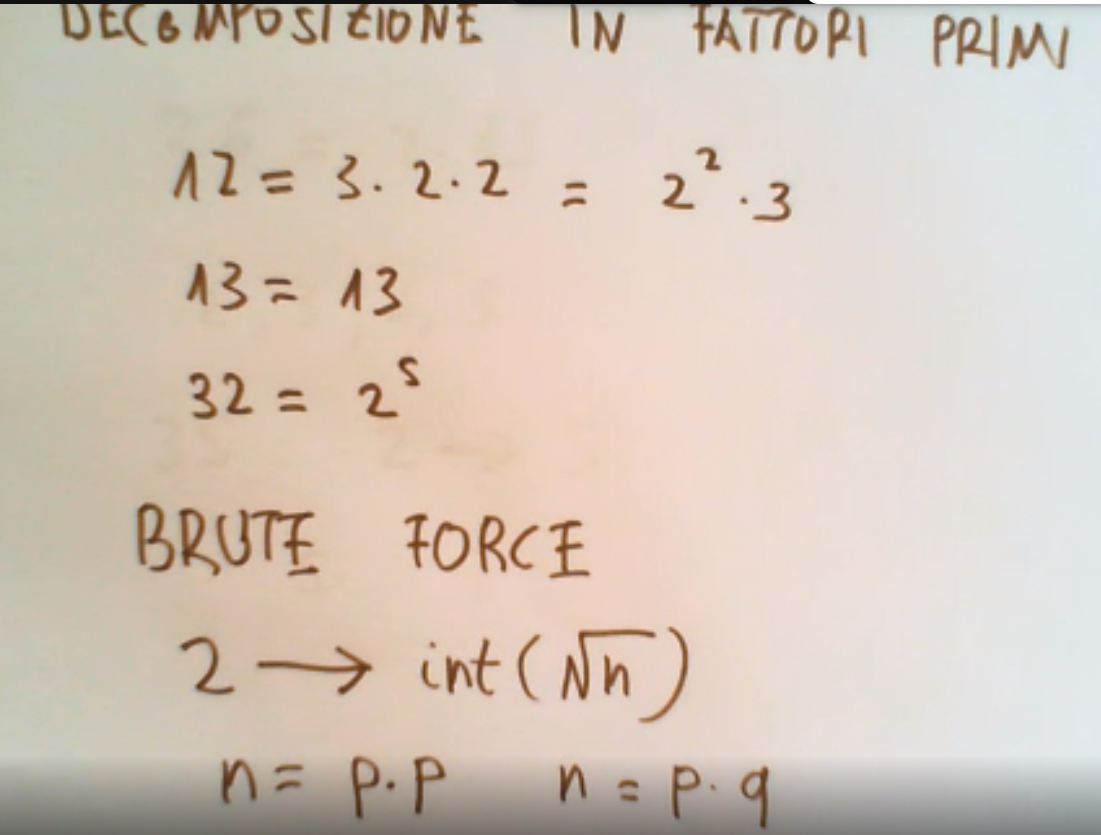 DECOMPOSIZIONE IN FATTORI PRIMI
12 = 3 · 2 · 2 = 2² · 3
13 = 13
32 = 2⁵
BRUTE FORCE
2 → int(√n)
n = p · p n = p · q